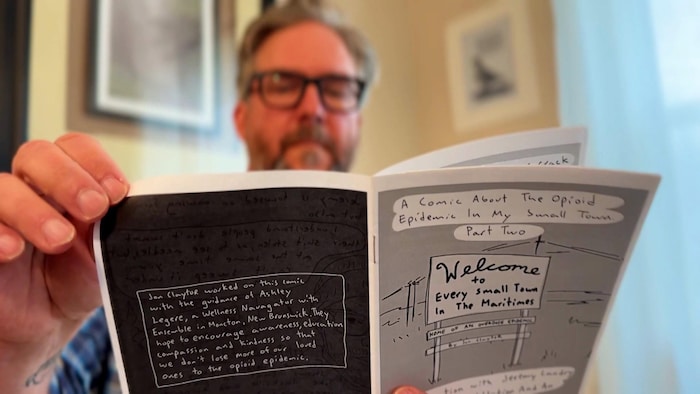 Jon Claytor worked on this comic
with the guidance of Ashley
Legere, a Wellness Navigator with
Ensemble in Moncton, New Brunswick. They
hope to encourage awareness, education
compassion and kindness so that
we don't lose more of our loved
ones to the opioid epidemic.
A Comic About The Opioid
Epidemic In My Small Town
Part Two
Welcome
to
Every Small Town
In The Maritimes
Home of an overdose epidemic
tion with Jeremy
And An